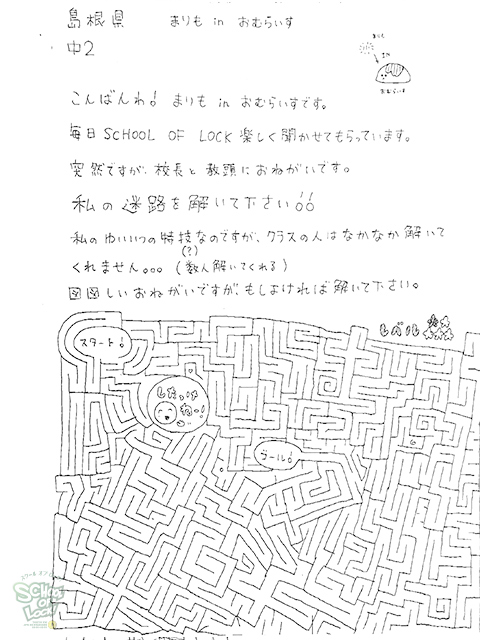 島根県 まりも in おむらいす
中2
まりも
おむらいす
こんばんわ! まりも in おむらいすです。
毎日 SCHOOL OF LOCK 楽しく聞かせてもらっています。
突然ですが、校長と教頭におねがいです。
私の迷路を解いて下さい!!
私のゆいいつの特技なのですが、クラスの人はなかなか解いて
(?)
くれません。。。(数人解いてくれる)
図図しいおねがいですが、もしよければ解いて下さい。
レベル ☆☆☆
スタート!
したっけ
ね~!
ゴール!
SCHOOL OF LOCK!